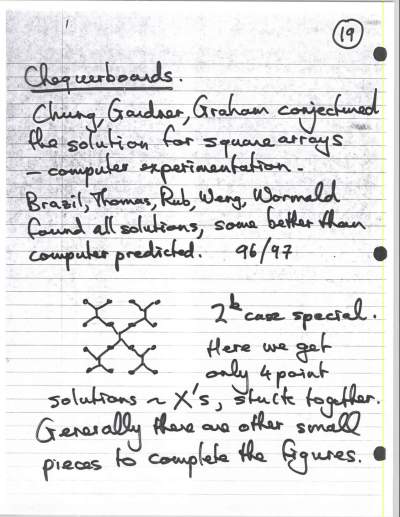 19
Chequerboards.
Chung, Gardner, Graham conjectured
the solution for square arrays
– computer experimentation.
Brazil, Thomas, Rub, Weng, Wormald
found all solutions, some better than
computer predicted. 96/97
2^k case special.
Here we get
only 4 point
solutions ~ X's, stuck together.
Generally there are other small
pieces to complete the figures.